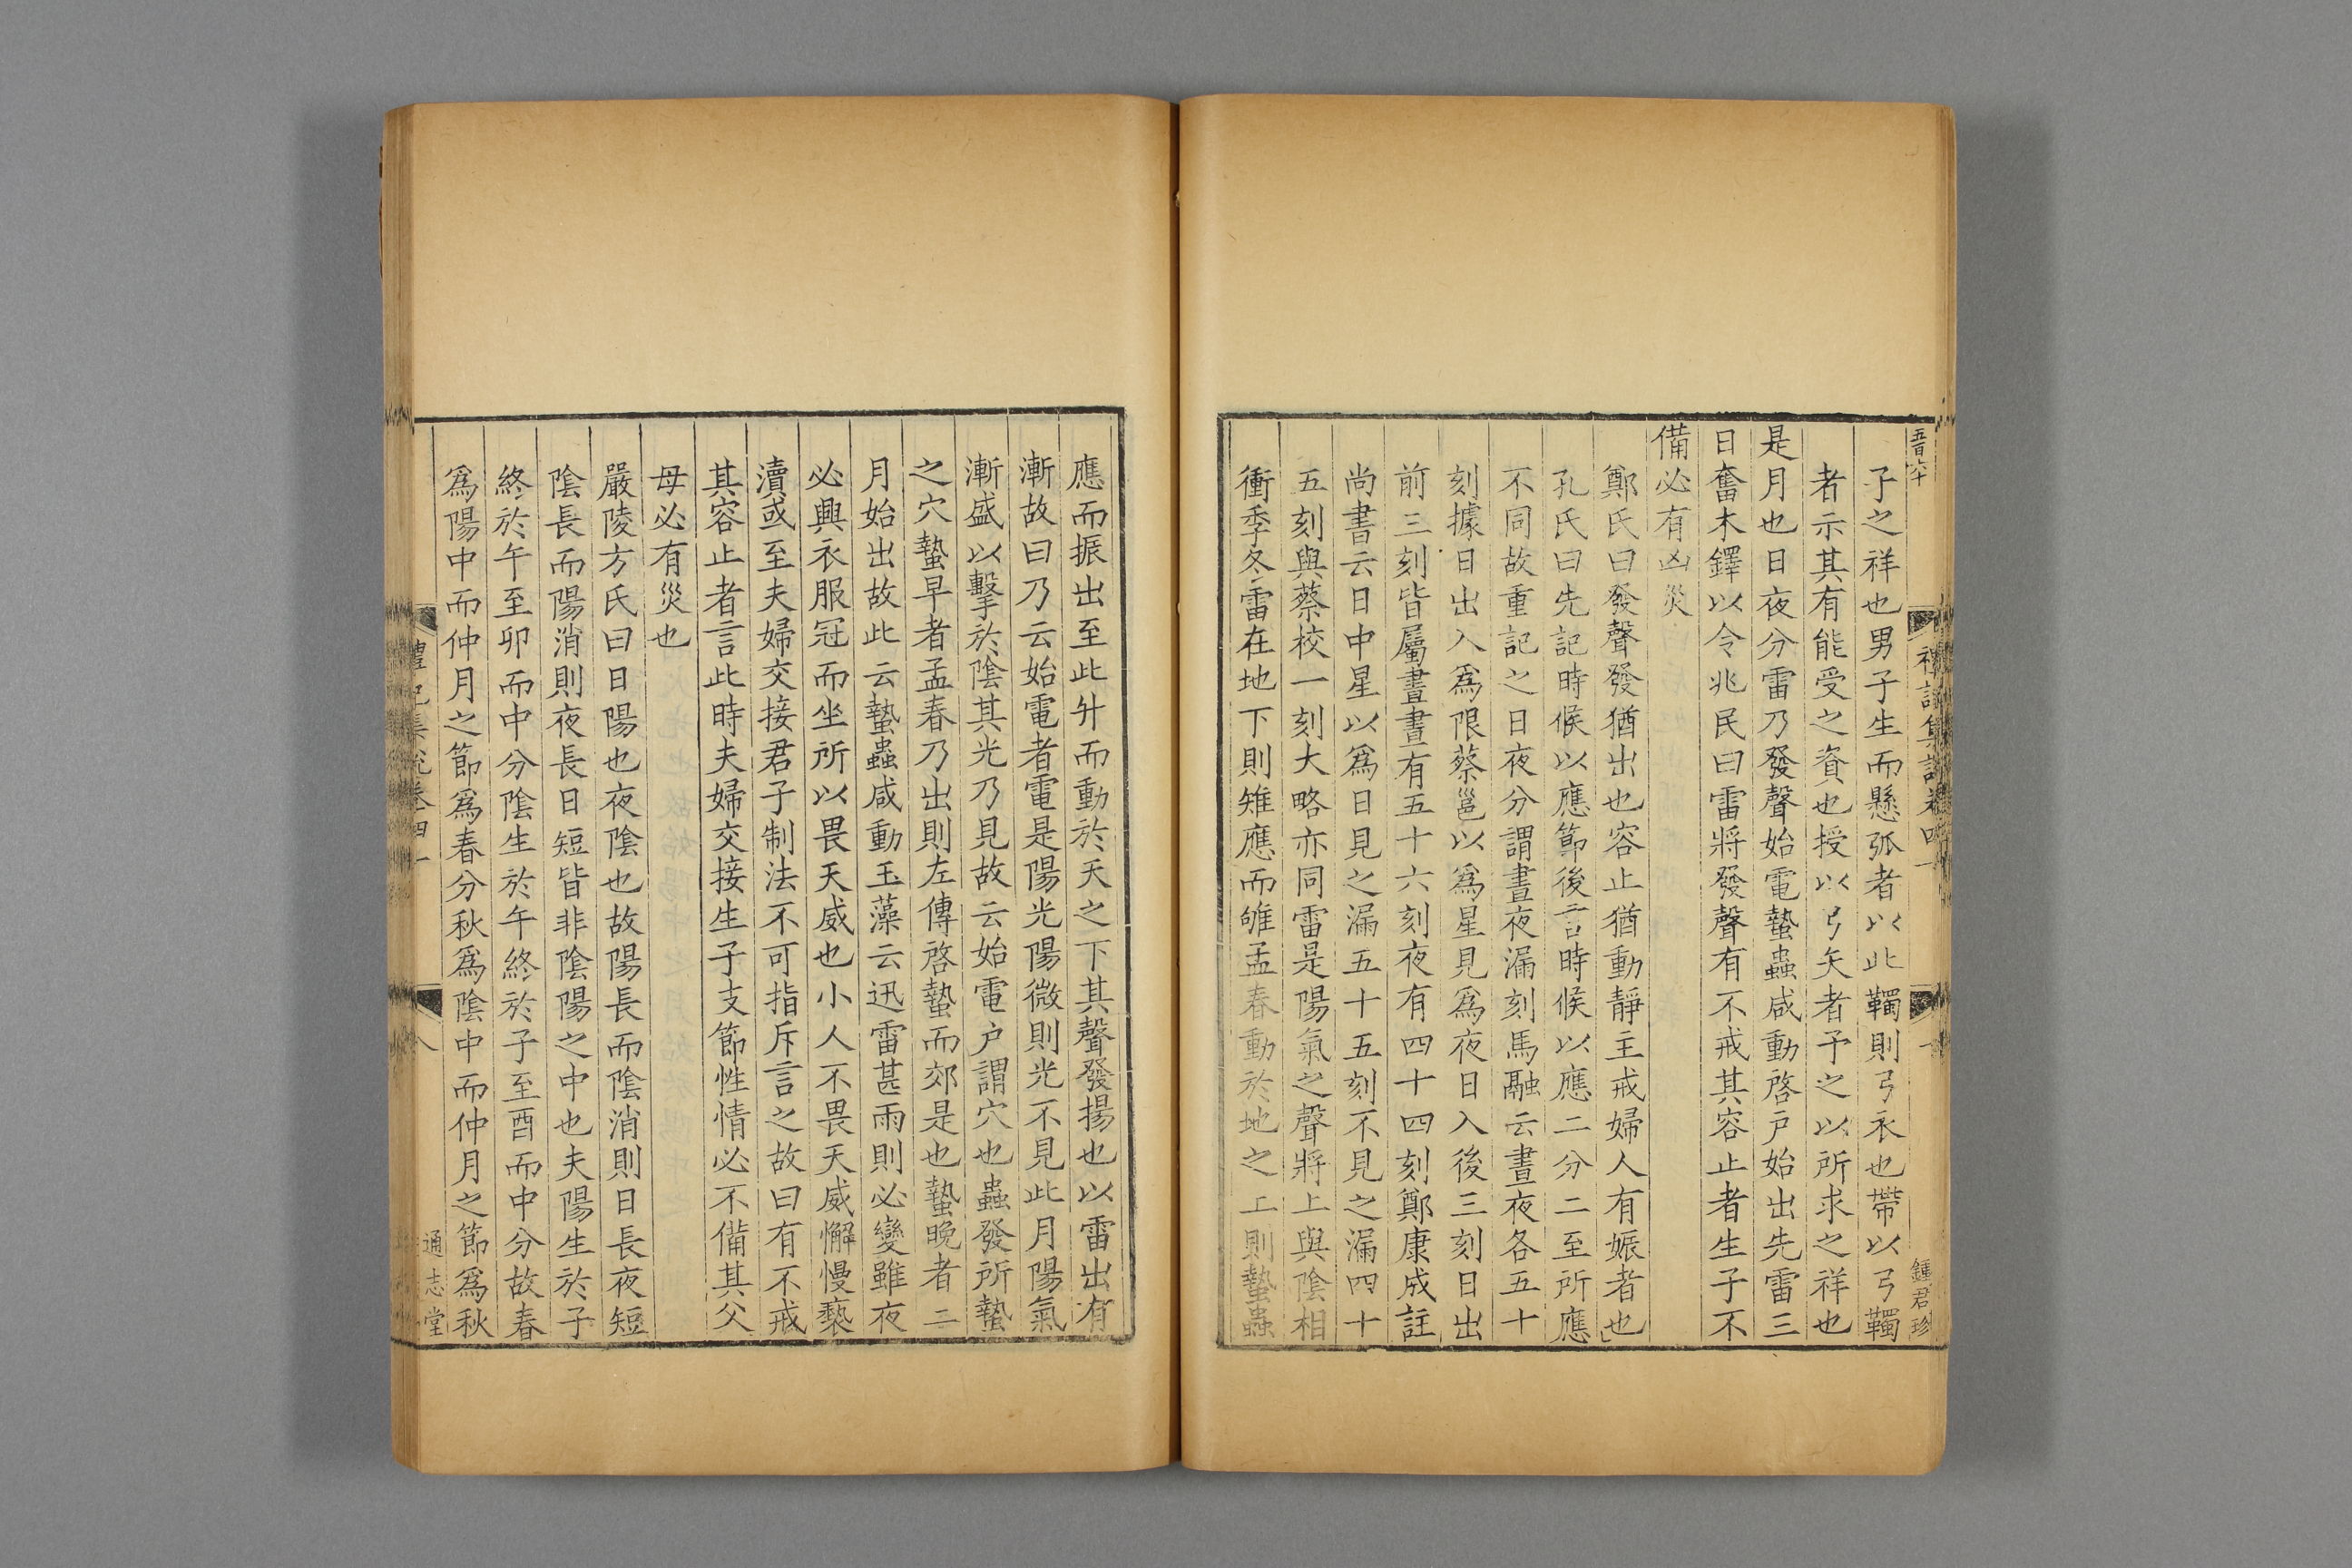 子之祥也男子生而懸弧者以此韣則弓衣也帶以弓韣
者示其有能受之資也授以弓矢者予之以所求之祥也
是月也日夜分雷乃發聲始電蟄蟲咸動啓戸始出先雷三
日奮木鐸以令兆民曰雷將發聲有不戒其容止者生子不
備必有凶災
鄭氏曰發聲發猶出也容止猶動靜主戒婦人有娠者也
孔氏曰先記時候以應節後言時候以應二分二至所應
不同故重記之日夜分謂晝夜漏刻馬融云晝夜各五十
刻據日出入爲限蔡邕以爲星見爲夜日入後三刻日出
前三刻皆屬晝晝有五十六刻夜有四十四刻鄭康成註
尚書云日中星以爲日見之漏五十五刻不見之漏四十
五刻與蔡校一刻大略亦同雷是陽氣之聲將上與陰相
衝季冬雷在地下則雉應而雊孟春動於地之上則蟄蟲
鍾君珍
應而振出至此升而動於天之下其聲發揚也以雷出有
漸故曰乃云始電者電是陽光陽微則光不見此月陽氣
漸盛以擊於陰其光乃見故云始電户謂穴也蟲發所蟄
之穴蟄早者孟春乃出則左傳啓蟄而郊是也蟄晚者二
月始出故此云蟄蟲咸動玉藻云迅雷甚雨則必變雖夜
必興衣服冠而坐所以畏天威也小人不畏天威懈慢褻
瀆或至夫婦交接君子制法不可指斥言之故曰有不戒
其容止者言此時夫婦交接生子支節性情必不備其父
母必有災也
嚴陵方氏曰日陽也夜陰也故陽長而陰消則日長夜短
陰長而陽消則夜長日短皆非陰陽之中也夫陽生於子
終於午至卯而中分陰生於午終於子至酉而中分故春
爲陽中而仲月之節爲春分秋爲陰中而仲月之節爲秋
禮記集說卷四十 八 通志堂